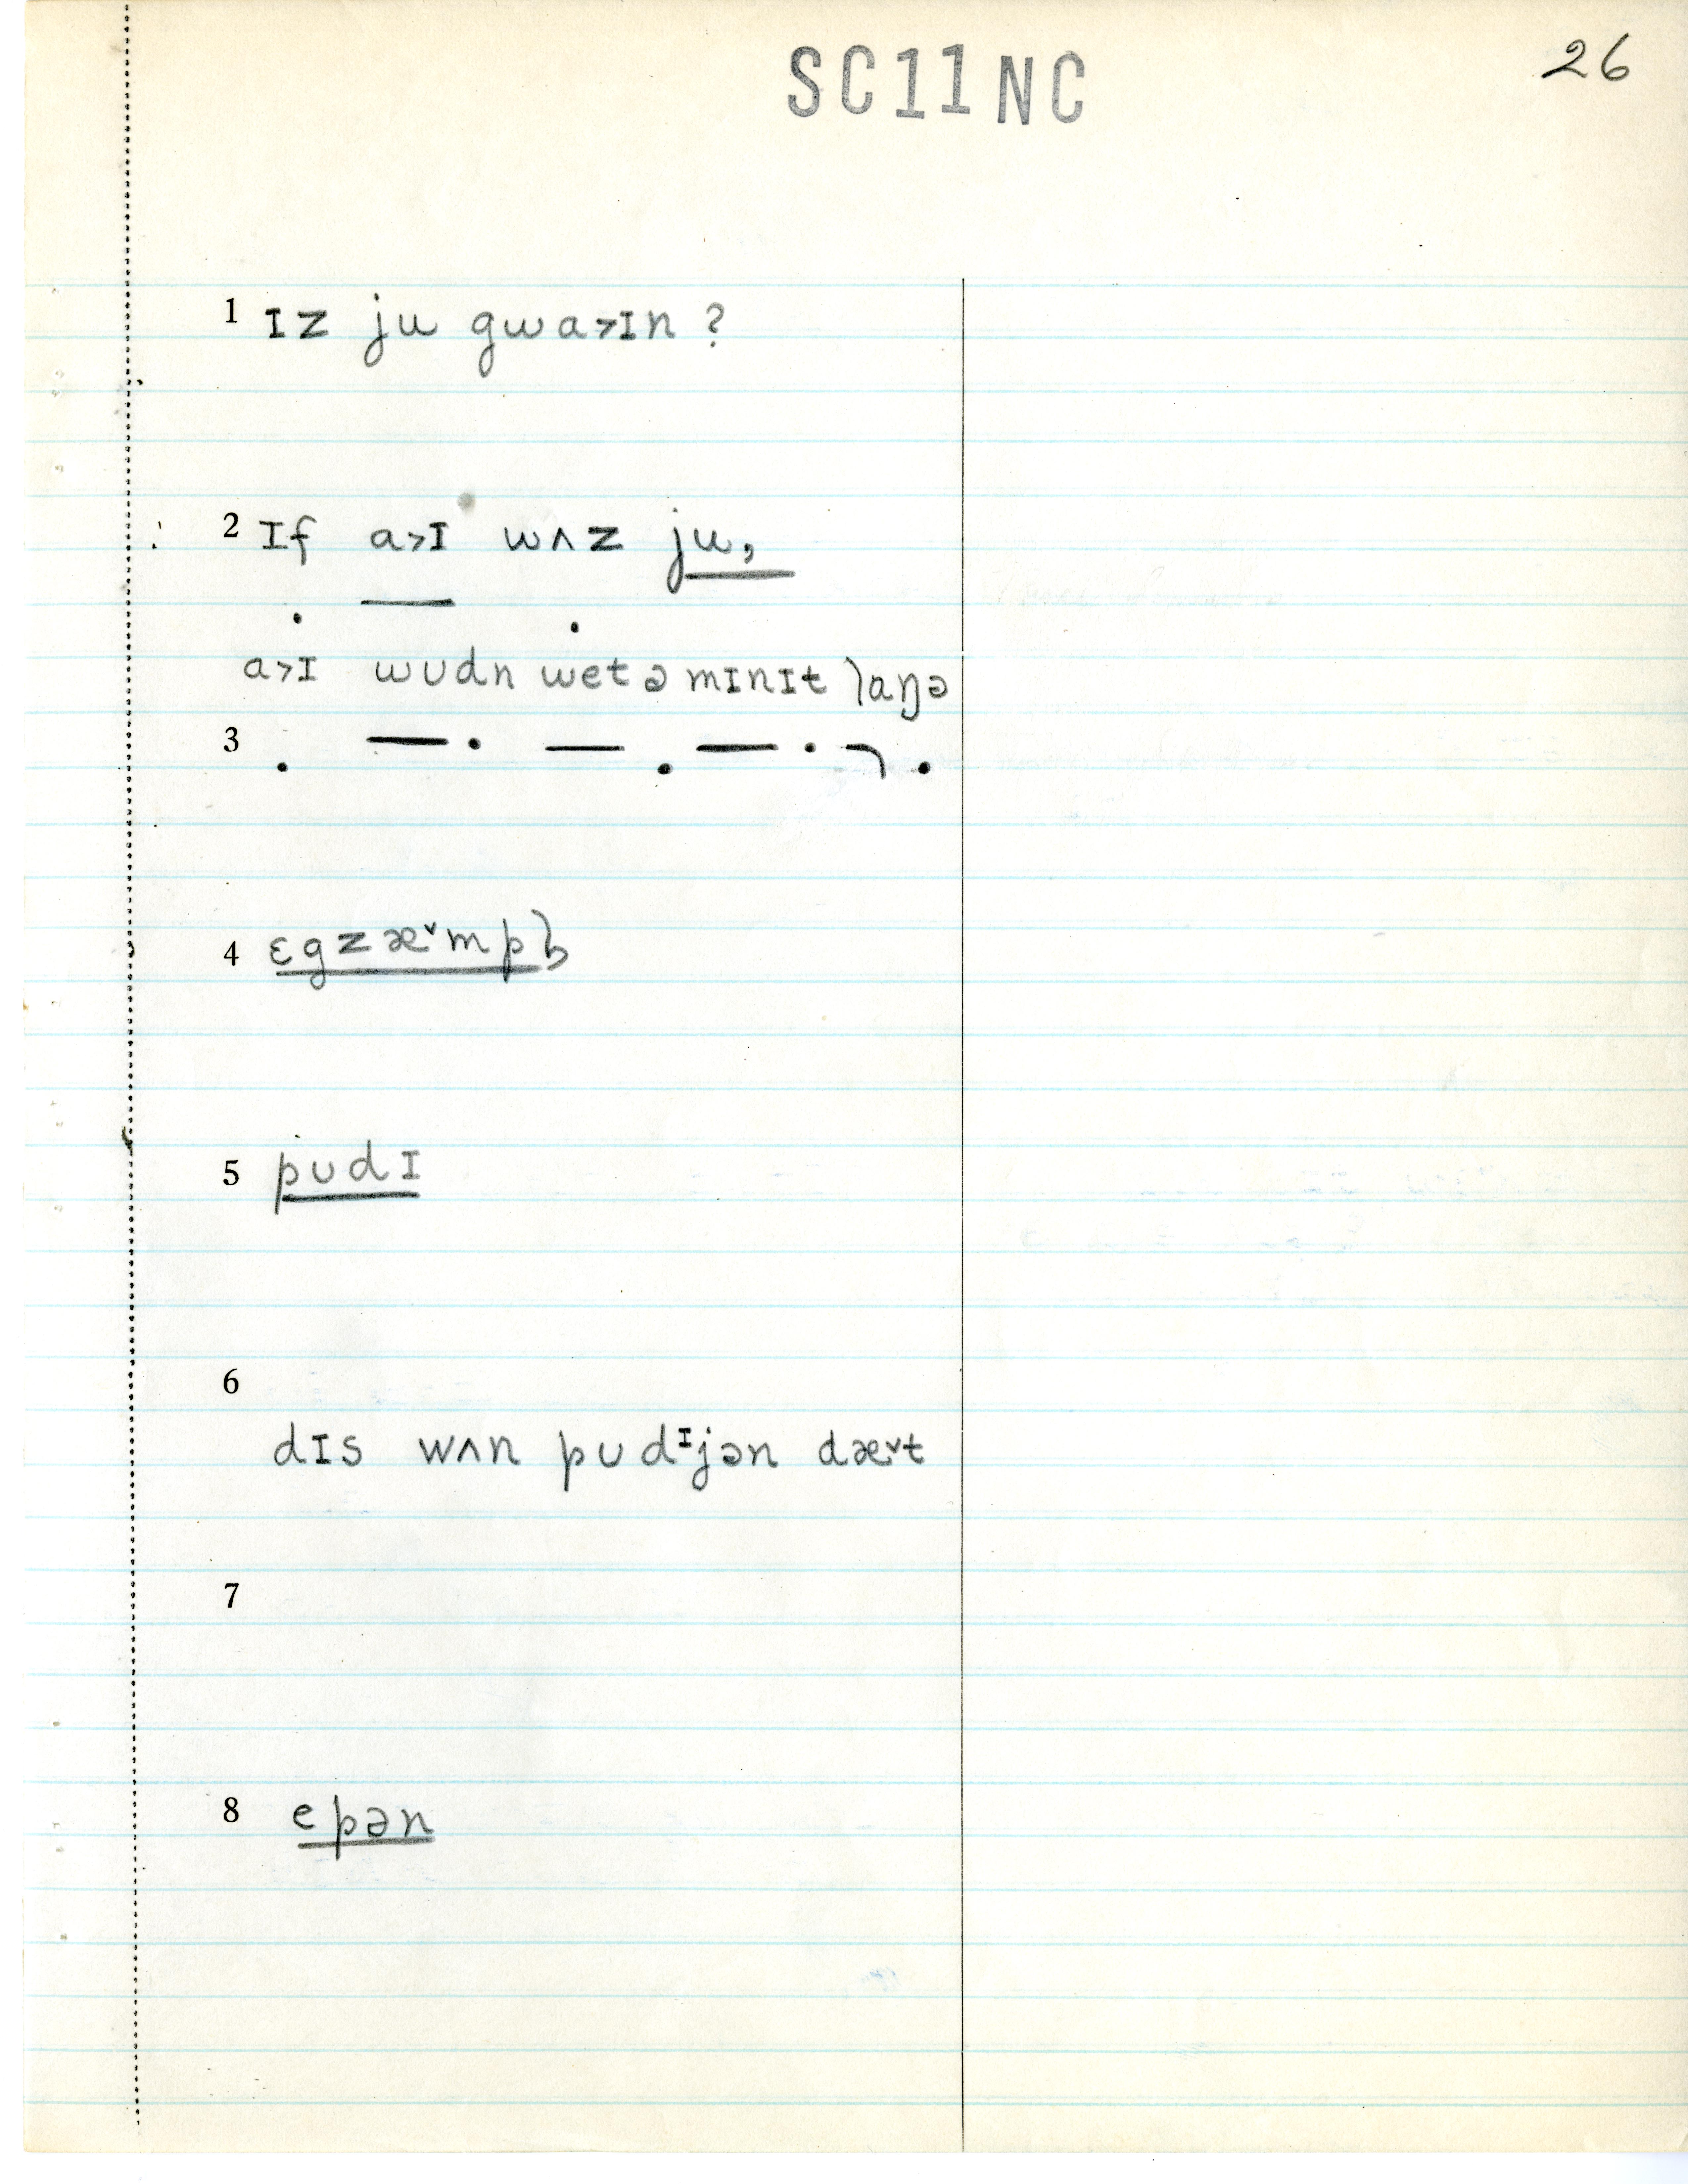 SC11NC
26
1 ɪz ju gwa>ɪn ?
2 ɪf a>ɪ wʌz ju,
a>ɪ wʊdn wet ə mɪnɪt laŋə
3
4 ɛgzæ˅mpl̩
5 pʊdɪ
6
dɪs wʌn pʊdᶦjən dæ˅t
7
8 epən